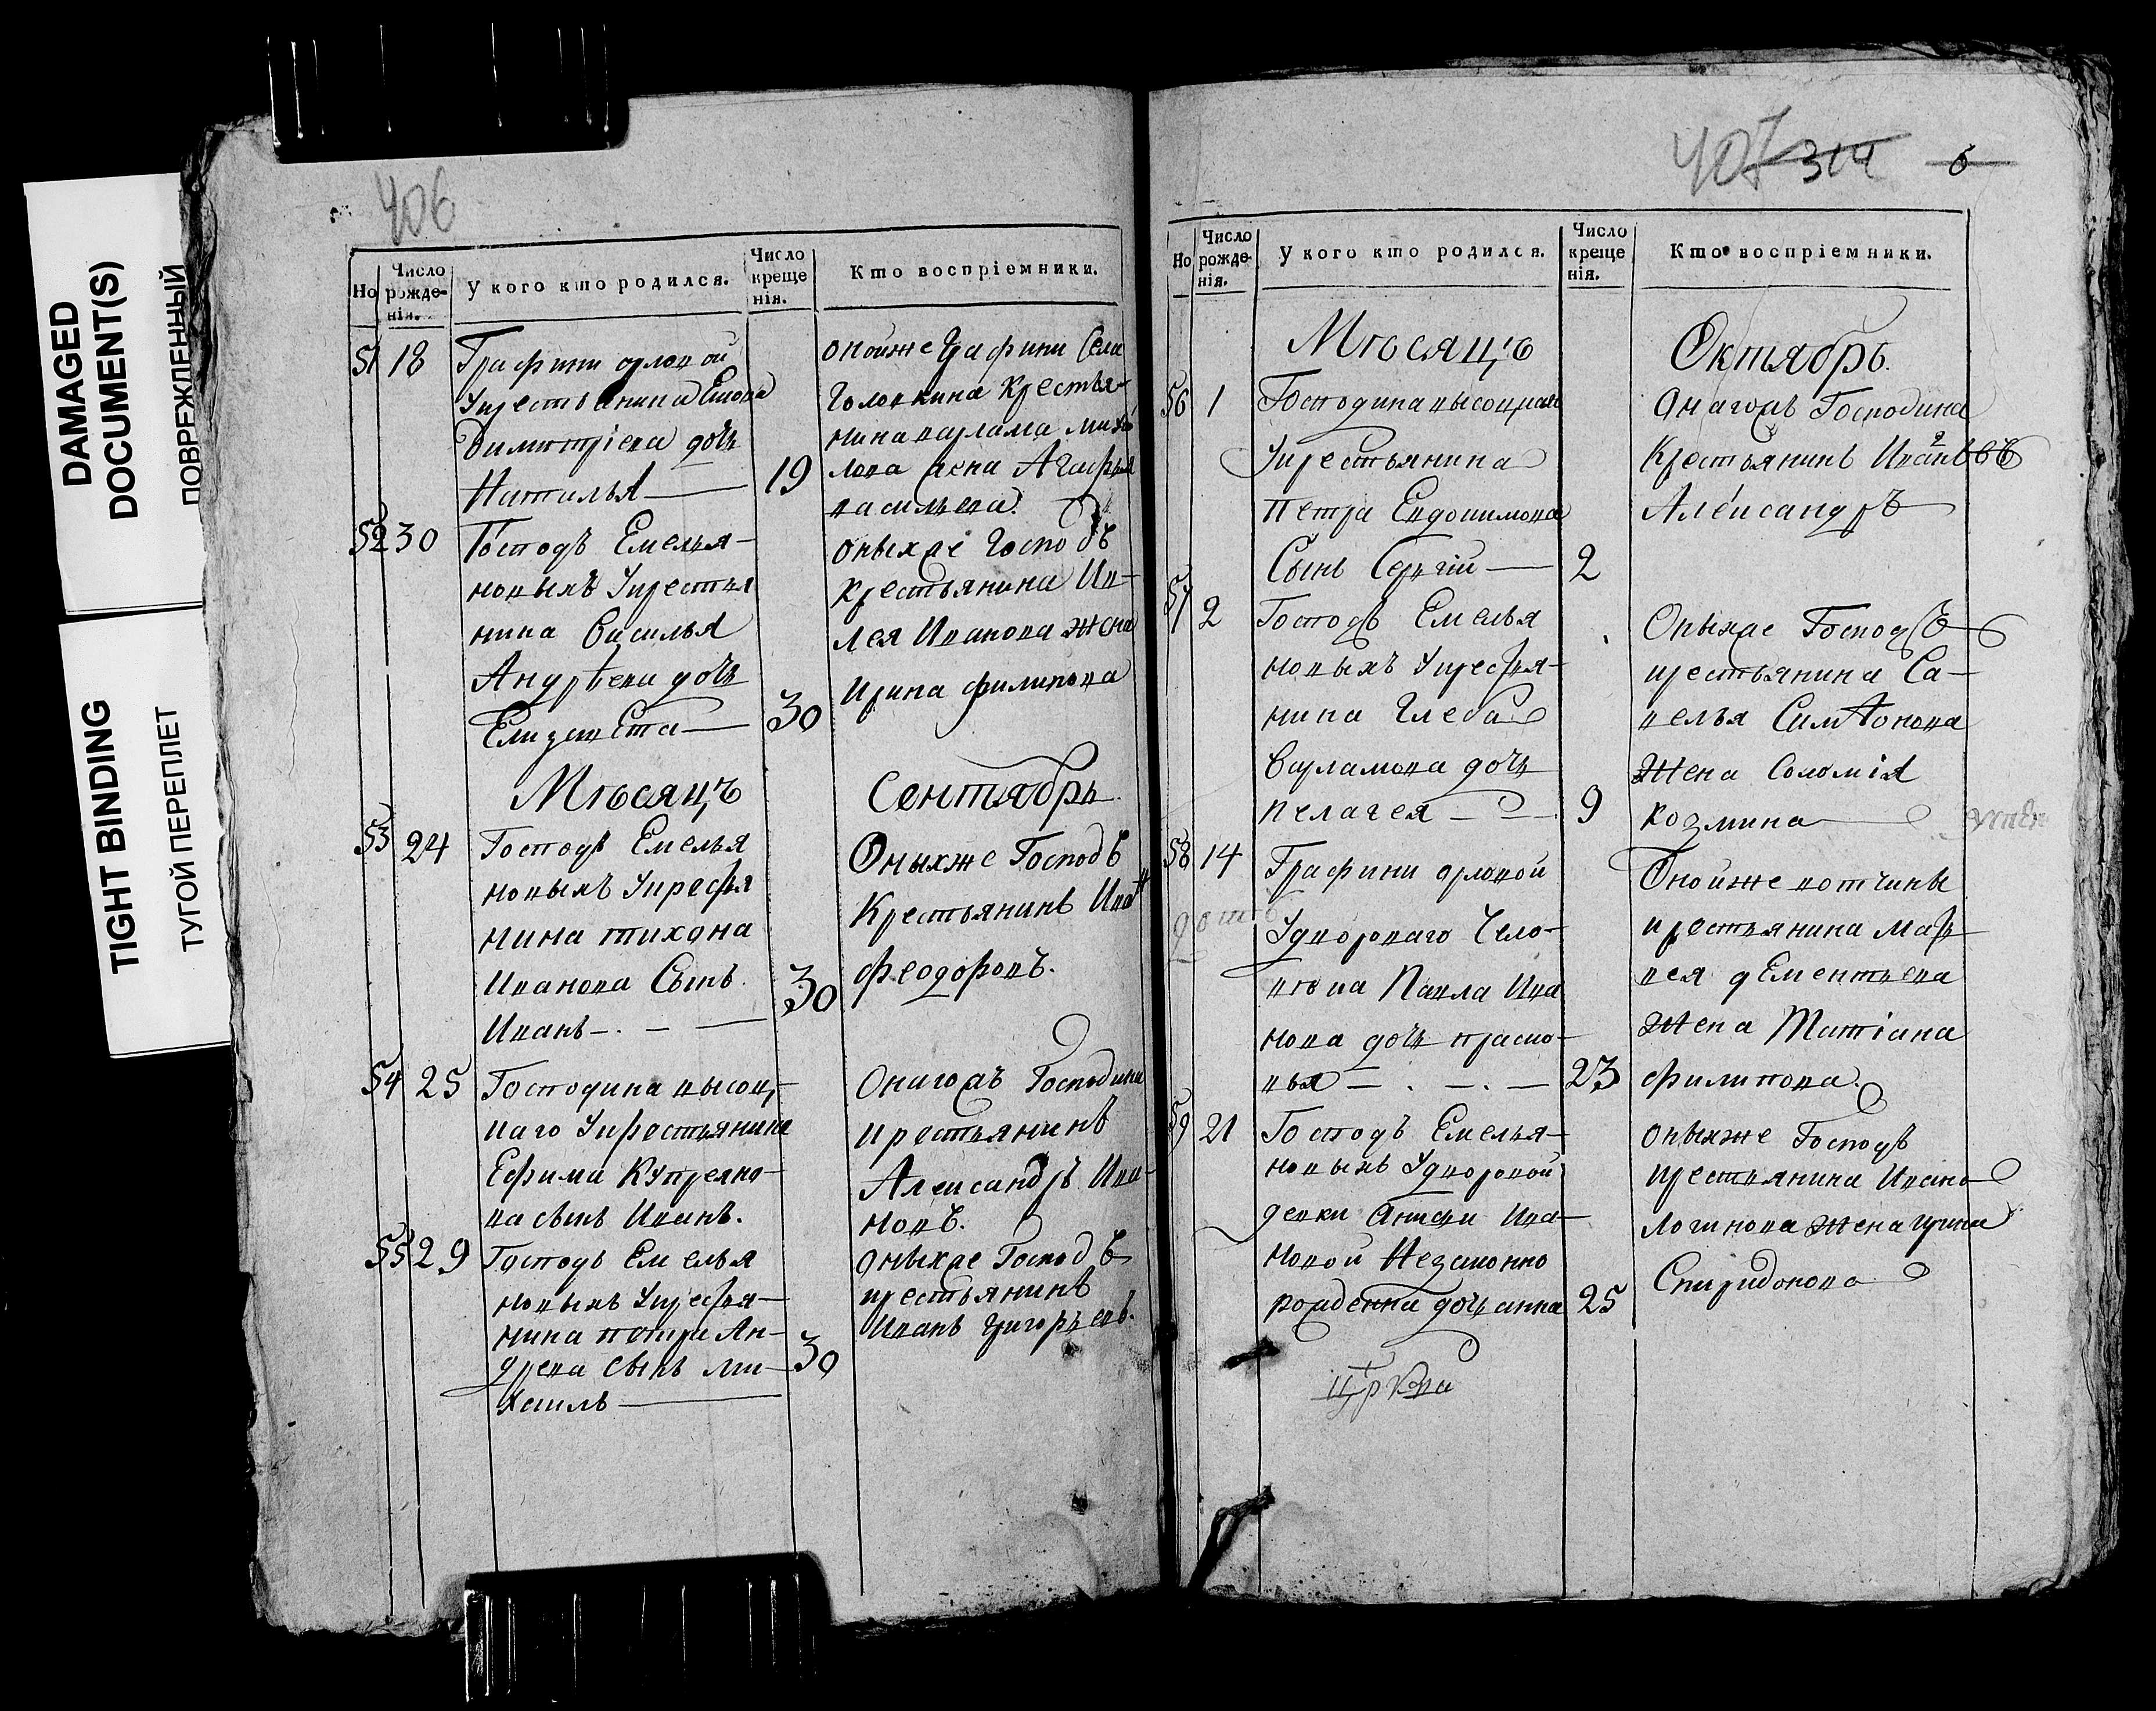 DAMAGED
DOCUMENT(S)
ПОВРЕЖДЕННЫЙ
TIGHT BINDING
ТУГОЙ ПЕРЕПЛЕТ
406
Но
Число рожденія.
У кого кто родился.
Число крещенія.
Кто воспріемники.
51 18
Графини орловой
Укрестьянина
Димитріева дочь
Наталья — 19
онойже Графини Села
Головкина Крестья-
нина варлама михаи
лова жена Агафья
васильева.
52 30
Господъ Емелья-
новыхъ Укрестья
нина Василья
Андрѣева дочь
Елизавета — 30
оныхже Господъ
крестьянина Ив-
лея Иванова жена
Ирина филипова
Мѣсяцъ Сентябрь
53 24
Господъ Емелья
новыхъ Укрестья
нина тихона
Иванова Сынъ
Иванъ — 30
Оныхже Господъ
Крестьянинъ Иванъ
феодоровъ.
54 25
Господина высоц-
каго Укрестьянина
Ефима Купреяно-
ва сынъ Иванъ.
Онагожъ Господина
крестьянинъ
Александръ Ива-
новъ.
55 29
Господъ Емелья
новыхъ Укрестья-
нина петра Ан-
дреева сынъ ми-
хаилъ — 30
оныхже Господъ
крестьянинъ
Иванъ григорьевъ.
407 314 6
Но
Число рожденія.
У кого кто родился.
Число крещенія.
Кто воспріемники.
Мѣсяцъ Октябрь.
56 1
Господина высоцкаго
Укрестьянина
петра Евдокимова
Сынъ Сергій — 2
Онагожъ Господина
Крестьянинъ Ивановъ
Александръ
57 2
Господъ Емелья
новыхъ Укрестья-
нина Глеба
варламова дочь
пелагея — 9
Оныхже Господъ
крестьянина Са-
велья Симеонова
Жена Соломія
козмина
58 14
Графини орловой
Удвороваго Чело-
вѣка Павла Ива
нова дочь праско-
вья — 23
Онойже вотчины
крестьянина Мат-
вея дементьева
Жена Татіана
филипова.
59 21
Господъ Емелья-
новыхъ Удворовой
девки Анисьи Ива-
новой Незаконно
рожденна дочь анна 25
оныхже Господъ
крестьянина Ивана
Логинова жена ирина
Спиридонова